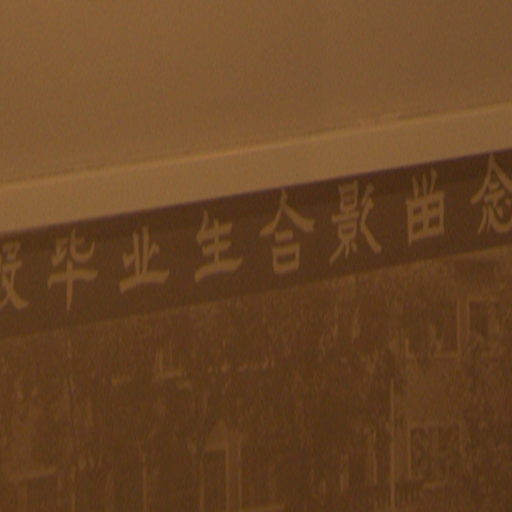 毕业生合影留念